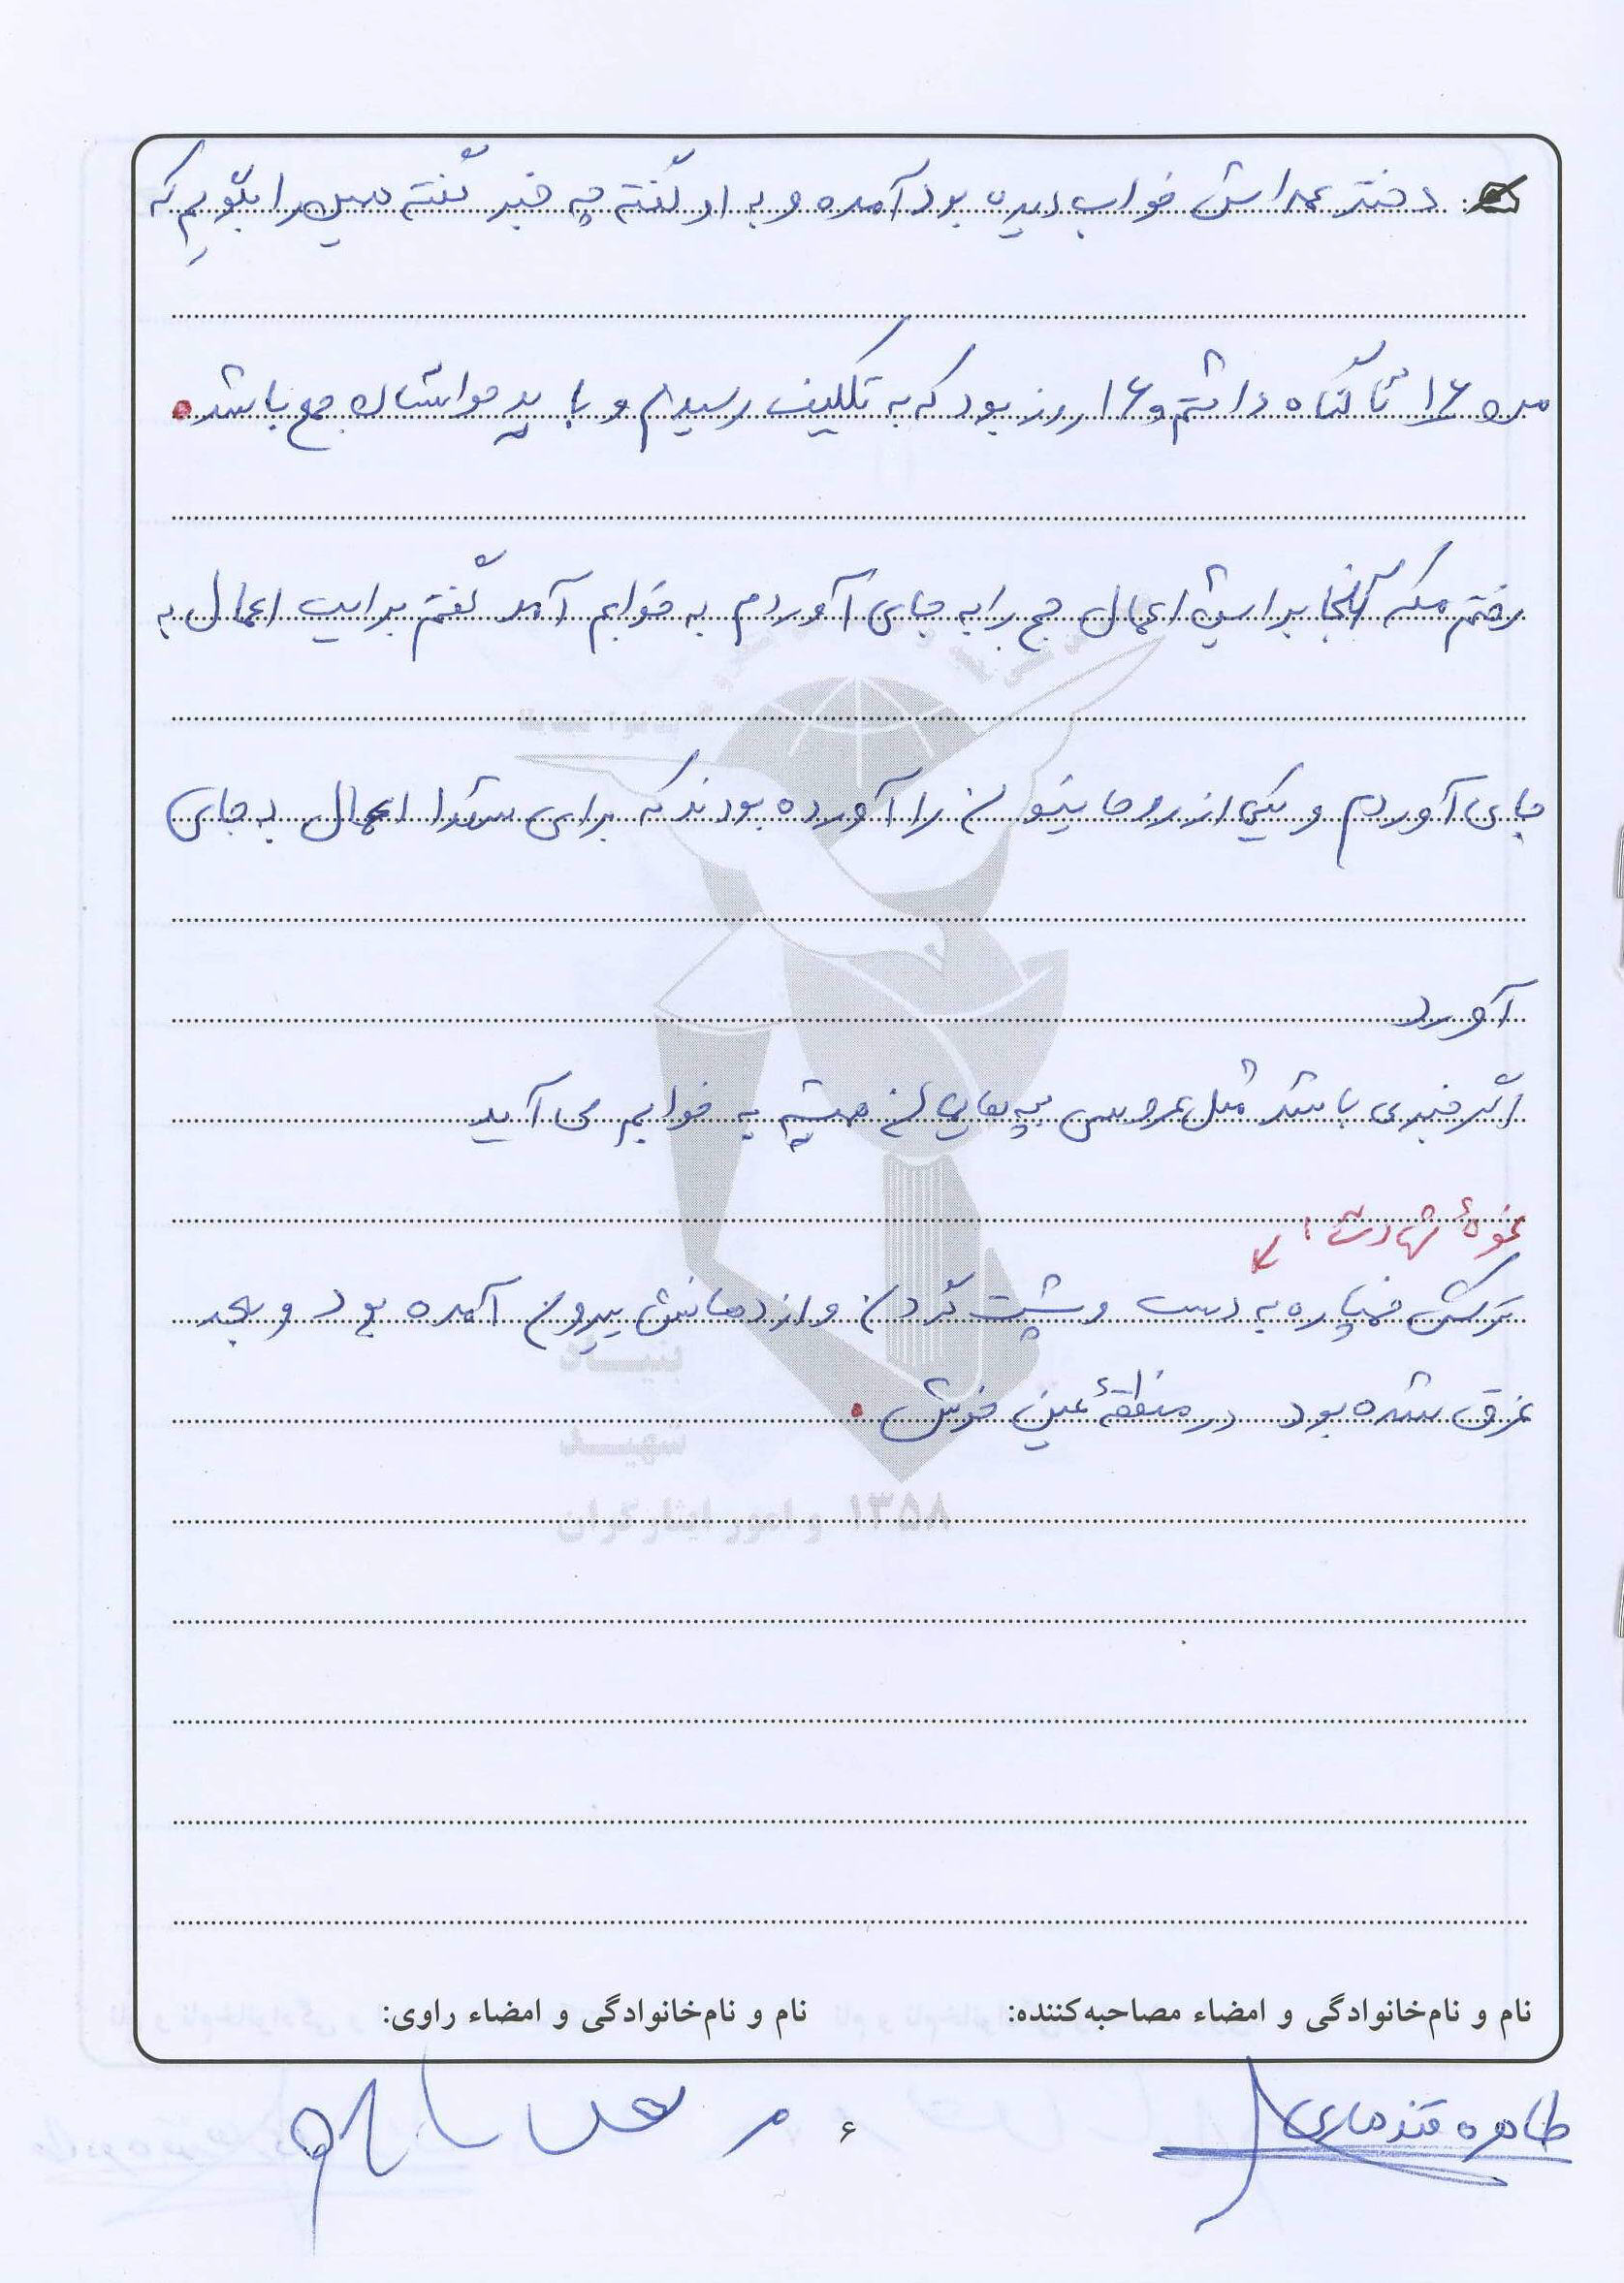 دختر عمه اش خواب دیده بود آمده و به او گفته چه خبر گفته همین را بگویم که
من ۱۶ تا گناه داشتم و ۱۶ روز بود که به تکلیف رسیدم و باید حواستان جمع باشد.
رفتم مکه آنجا برایش اعمال حج را به جای آوردم به خوابم آمد گفتم برایت اعمال به
جای آوردم و یکی از روحانیون را آورده بودند که برای شهدا اعمال به جای
آورد
اگر خبری باشد مثل عروسی همیشه به خوابم می آید
نحوهٔ شهادت:
ترکش خمپاره به دست و پشت گردن و از دهانش بیرون آمده بود و بعد
غرق شده بود در منطقهٔ عین خوش.
بنیاد
شهید
و امور ایثارگران ۱۳۵۸
نام و نام‌خانوادگی و امضاء مصاحبه‌کننده: نام و نام‌خانوادگی و امضاء راوی:
طاهره قندهاری
۶